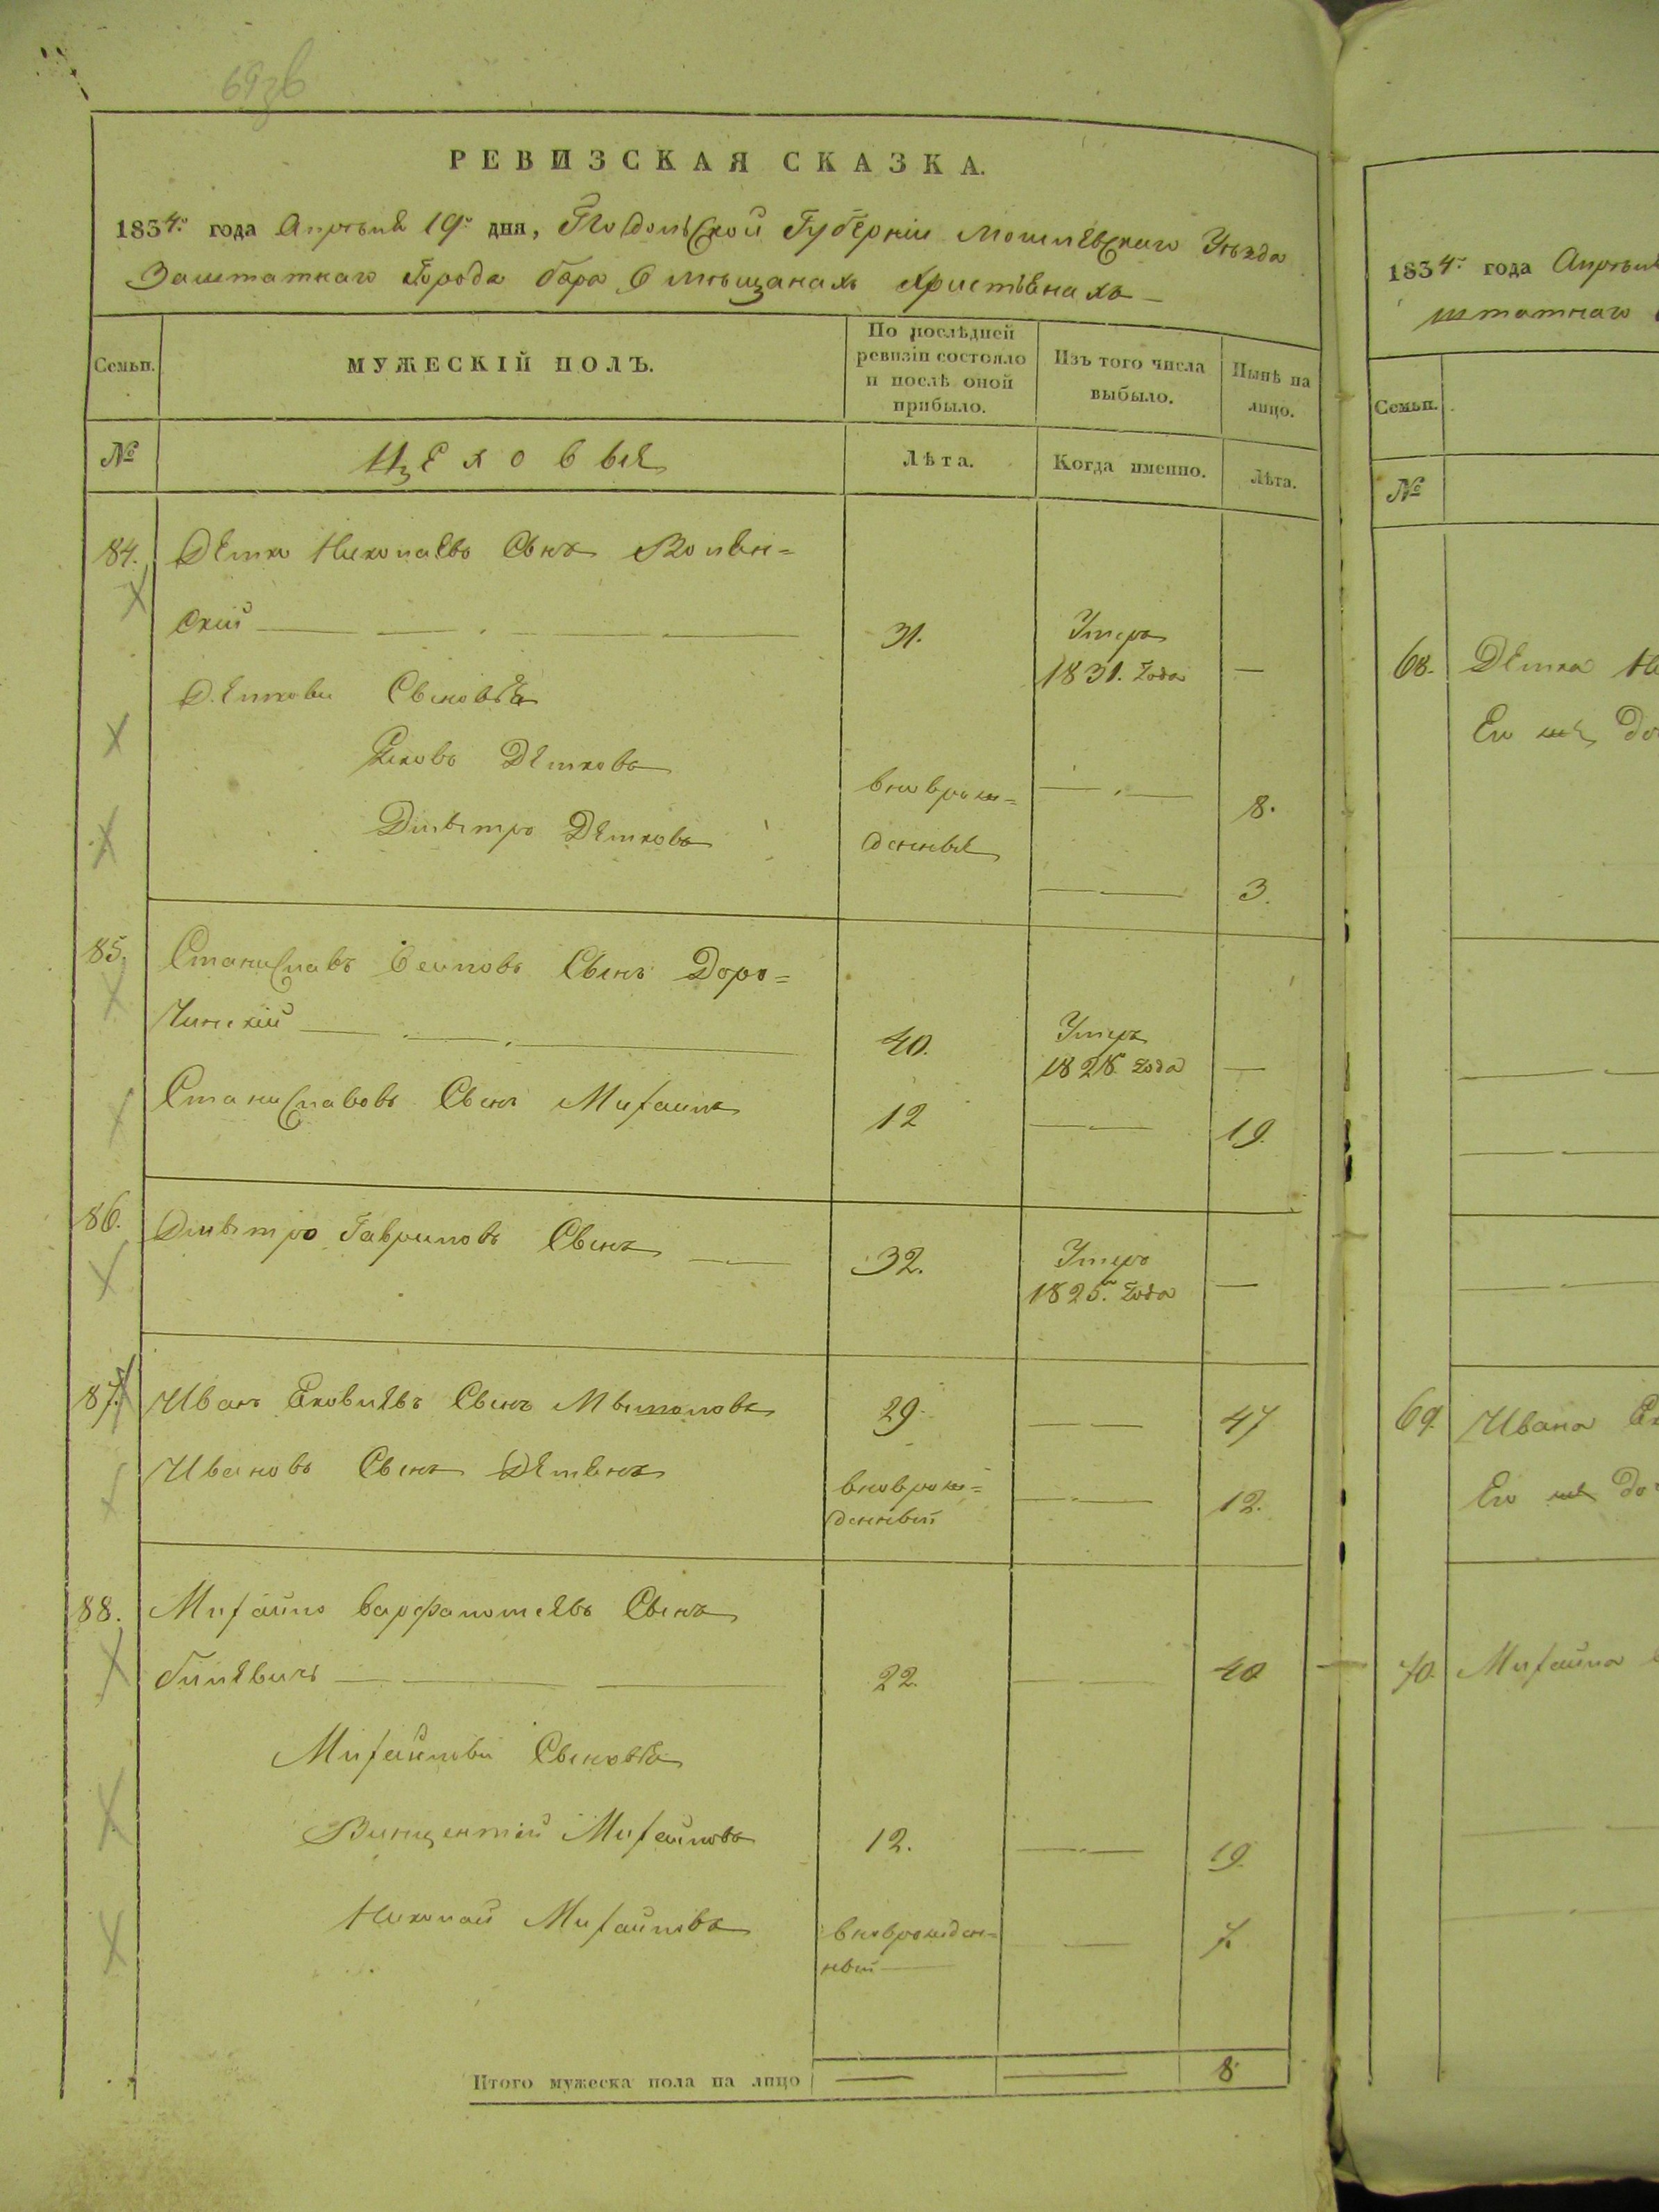 69зв
РЕВИЗСКАЯ СКАЗКА.
1834го года Апрѣля 19го дня, Подольской Губерніи Могилевскаго Уѣзда
Заштатнаго Города бара О мѣщанахъ Христіянахъ
Семьи.
МУЖЕСКІЙ ПОЛЪ.
По послѣдней ревизіи состояло и послѣ оной прибыло.
Изъ того числа выбыло.
Нынѣ на лицо.
№
Цеховые
Лѣта.
Когда именно.
Лѣта.
84. Демко Николаевъ Сынъ Волян=
скій 31. Умеръ
1831. года —
Демкови Сыновья
Яковъ Демковъ вноврож= 8.
Дмытро Демковъ денные
3.
85. Станиславъ Осиповъ Сынъ Доро=
чинскій 40. Умеръ
1828 года —
Станиславовъ Сынъ Михаилъ 12 19.
86. Дмытро Гавриловъ Сынъ 32. Умеръ
1825го года —
87. Иванъ Яковлевъ Сынъ 29 47
Ивановъ Сынъ Демянъ вноврож= 12.
денный
88. Михайло Варфаломеевъ Сынъ
22. 40
Михайлови Сыновья
Винцентій Михайловъ 12. 19.
Николай Михайловъ вноврожден= 7.
ный
Итого мужеска пола на лицо 8
1834го года Апрѣля
штатнаго
Семьи.
№
68. Демка Ни
Его же До
69. Ивана Як
Его же До
70. Михайла